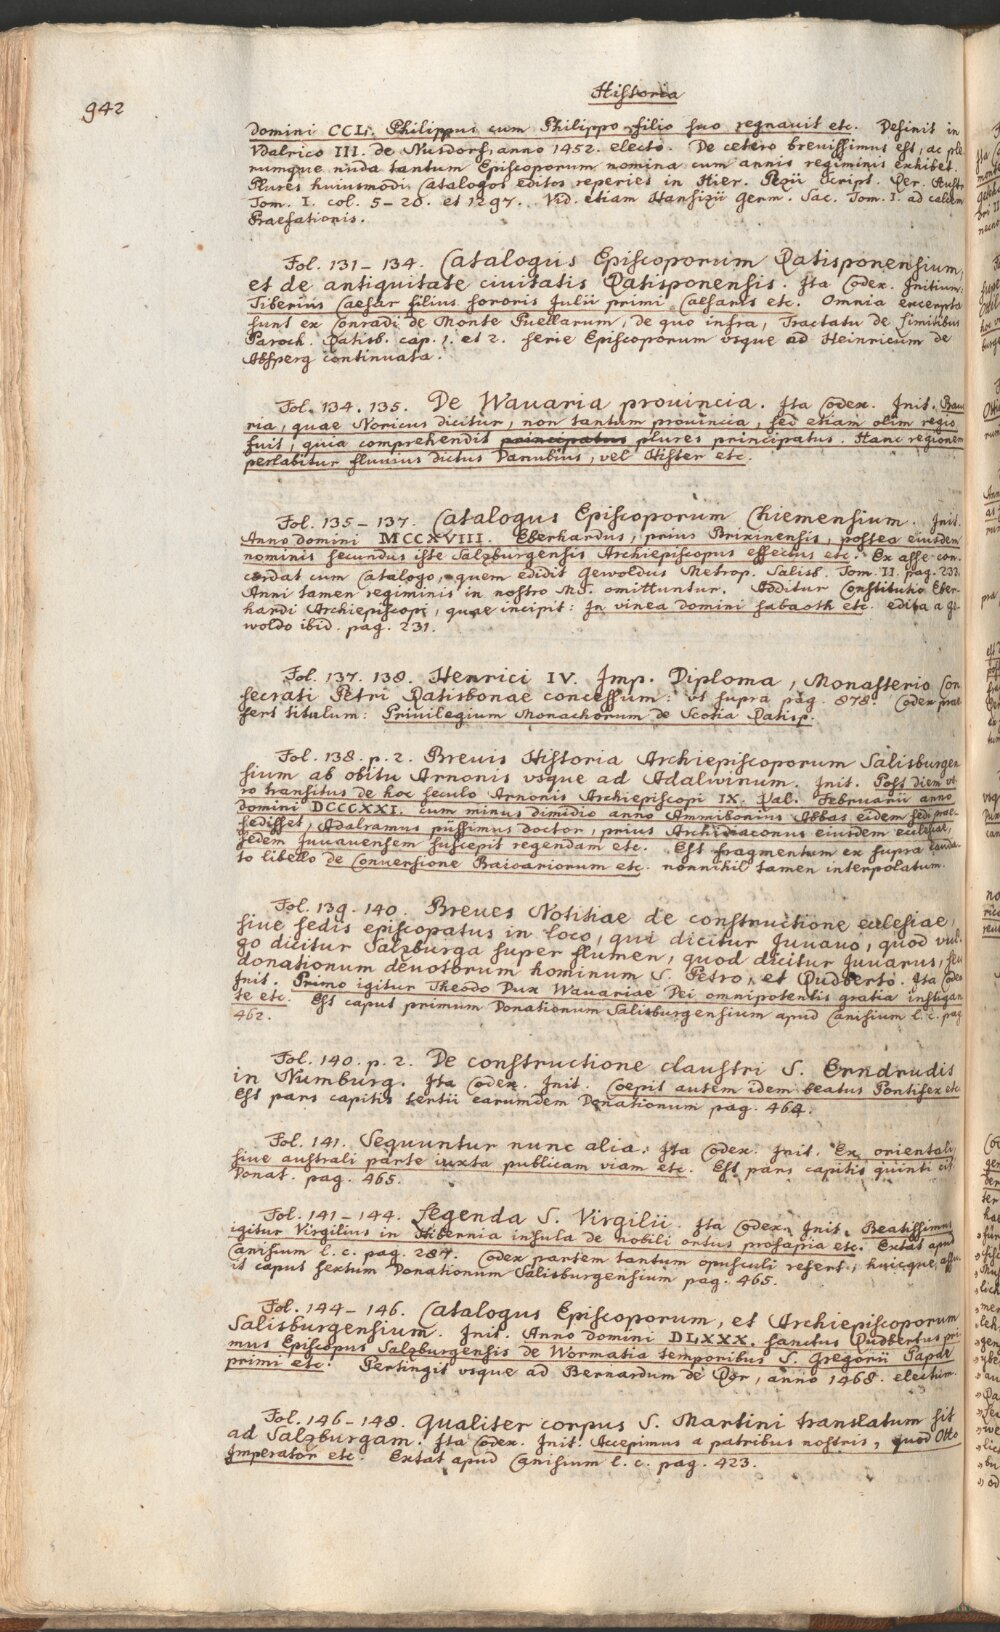 942
Historia
domini CCL. Philippus cum Philippo filio suo regnauit etc. Desinit in
Vdalrico III. de Nusdorf, anno 1452. electo. De cetero breuissimus est, ac ple
rumque nuda tantum Episcoporum nomina cum annis regiminis exhibet.
Plures huiusmodi Catalogos editos reperies in Hier. Pezii Script. Rer. Austr.
Tom. I. col. 5-20. et 1297. Vid. etiam Hansizii Germ. Sac. Tom. I. ad calcem
Praefationis.
Fol. 131-134. Catalogus Episcoporum Ratisponensium,
et de antiquitate ciuitatis Ratisponensis. Ita Codex. Initium:
Tiberius Caesar filius sororis Julii primi Caesaris etc. Omnia excerpta
sunt ex Conradi de Monte Puellarum, de quo infra, Tractatu de Limitibus
Paroch. Ratisb. cap. 1. et 2. serie Episcoporum vsque ad Heinricum de
Absperg continuata.
Fol. 134. 135. De Wauaria prouincia. Ita Codex. Init. Baua
ria, quae Noricus dicitur, non tantum prouincia, sed etiam olim regio
fuit, quia comprehendit principatus plures principatus. Hanc regionem
perlabitur fluuius dictus Danubius, vel Hister etc.
Fol. 135-137. Catalogus Episcoporum Chiemensium. Init.
Anno domini MCCXVIII. Eberhardus, prius Brixinensis, postea eiusdem
nominis secundus iste Salzburgensis Archiepiscopus effectus etc. Ex asse con
cordat cum Catalogo, quem edidit Gewoldus Metrop. Salisb. Tom. II. pag. 233.
Anni tamen regiminis in nostro MS. omittuntur. Additur Constitutio Eber
hardi Archiepiscopi, quae incipit: In vinea domini sabaoth etc. edita a Ge
woldo ibid. pag. 231.
Fol. 137. 138. Henrici IV. Imp. Diploma, Monasterio Con
secrati Petri Ratisbonae concessum: vt supra pag. 878. Codex prae
fert titulum: Priuilegium Monachorum de Scotia Ratisp.
Fol. 138. p. 2. Breuis Historia Archiepiscoporum Salisburgen
sium ab obitu Arnonis vsque ad Adalwinum. Init. Post diem ve
ro transitus de hoc seculo Arnonis Archiepiscopi IX. Kal. Februarii anno
domini DCCCXXI. cum minus dimidio anno Ammibonius Abbas eidem sedi prae
sedisset, Adalramus piissimus doctor, prius Archidiaconus eiusdem ecclesiae,
sedem Juuauensem suscepit regendam etc. Est fragmentum ex supra lauda
to libello de Conuersione Baioariorum etc. nonnihil tamen interpolatum.
Fol. 139. 140. Breues Notitiae de constructione ecclesiae,
siue sedis episcopatus in loco, qui dicitur Juuauo, quod vul
go dicitur Salzburga super flumen, quod dicitur Juuarus, seu
donationum deuotorum hominum S. Petro, et Rudberto. Ita Codex
Init. Primo igitur Theodo Dux Wauariae Dei omnipotentis gratia instigan
te etc. Est caput primum Donationum Salisburgensium apud Canisium l. c. pag.
462.
Fol. 140. p. 2. De constructione claustri S. Erndrudis
in Numburg. Ita Codex. Init. Coepit autem idem beatus Pontifex etc
Est pars capitis tertii earumdem Donationum pag. 464.
Fol. 141. Sequuntur nunc alia: Ita Codex. Init. Ex orientali
siue australi parte iuxta publicam viam etc. Est pars capitis quinti cit.
Donat. pag. 465.
Fol. 141-144. Legenda S. Virgilii. Ita Codex. Init. Beatissimus
igitur Virgilius in Hibernia insula de nobili ortus prosapia etc. Extat apud
Canisium l. c. pag. 284. Codex partem tantum opusculi refert, huicque assu
it caput sextum Donationum Salisburgensium pag. 465.
Fol. 144-146. Catalogus Episcoporum, et Archiepiscoporum
Salisburgensium. Init. Anno domini DLXXX. sanctus Rudbertus pri
mus Episcopus Salzburgensis de Wormatia temporibus S. Gregorii Papae
primi etc. Pertingit vsque ad Bernardum de Ror, anno 1468. electum.
Fol. 146-148. Qualiter corpus S. Martini translatum sit
ad Salzburgam. Ita Codex. Init. Accepimus a patribus nostris, quod Otto
Imperator etc. Extat apud Canisium l. c. pag. 423.